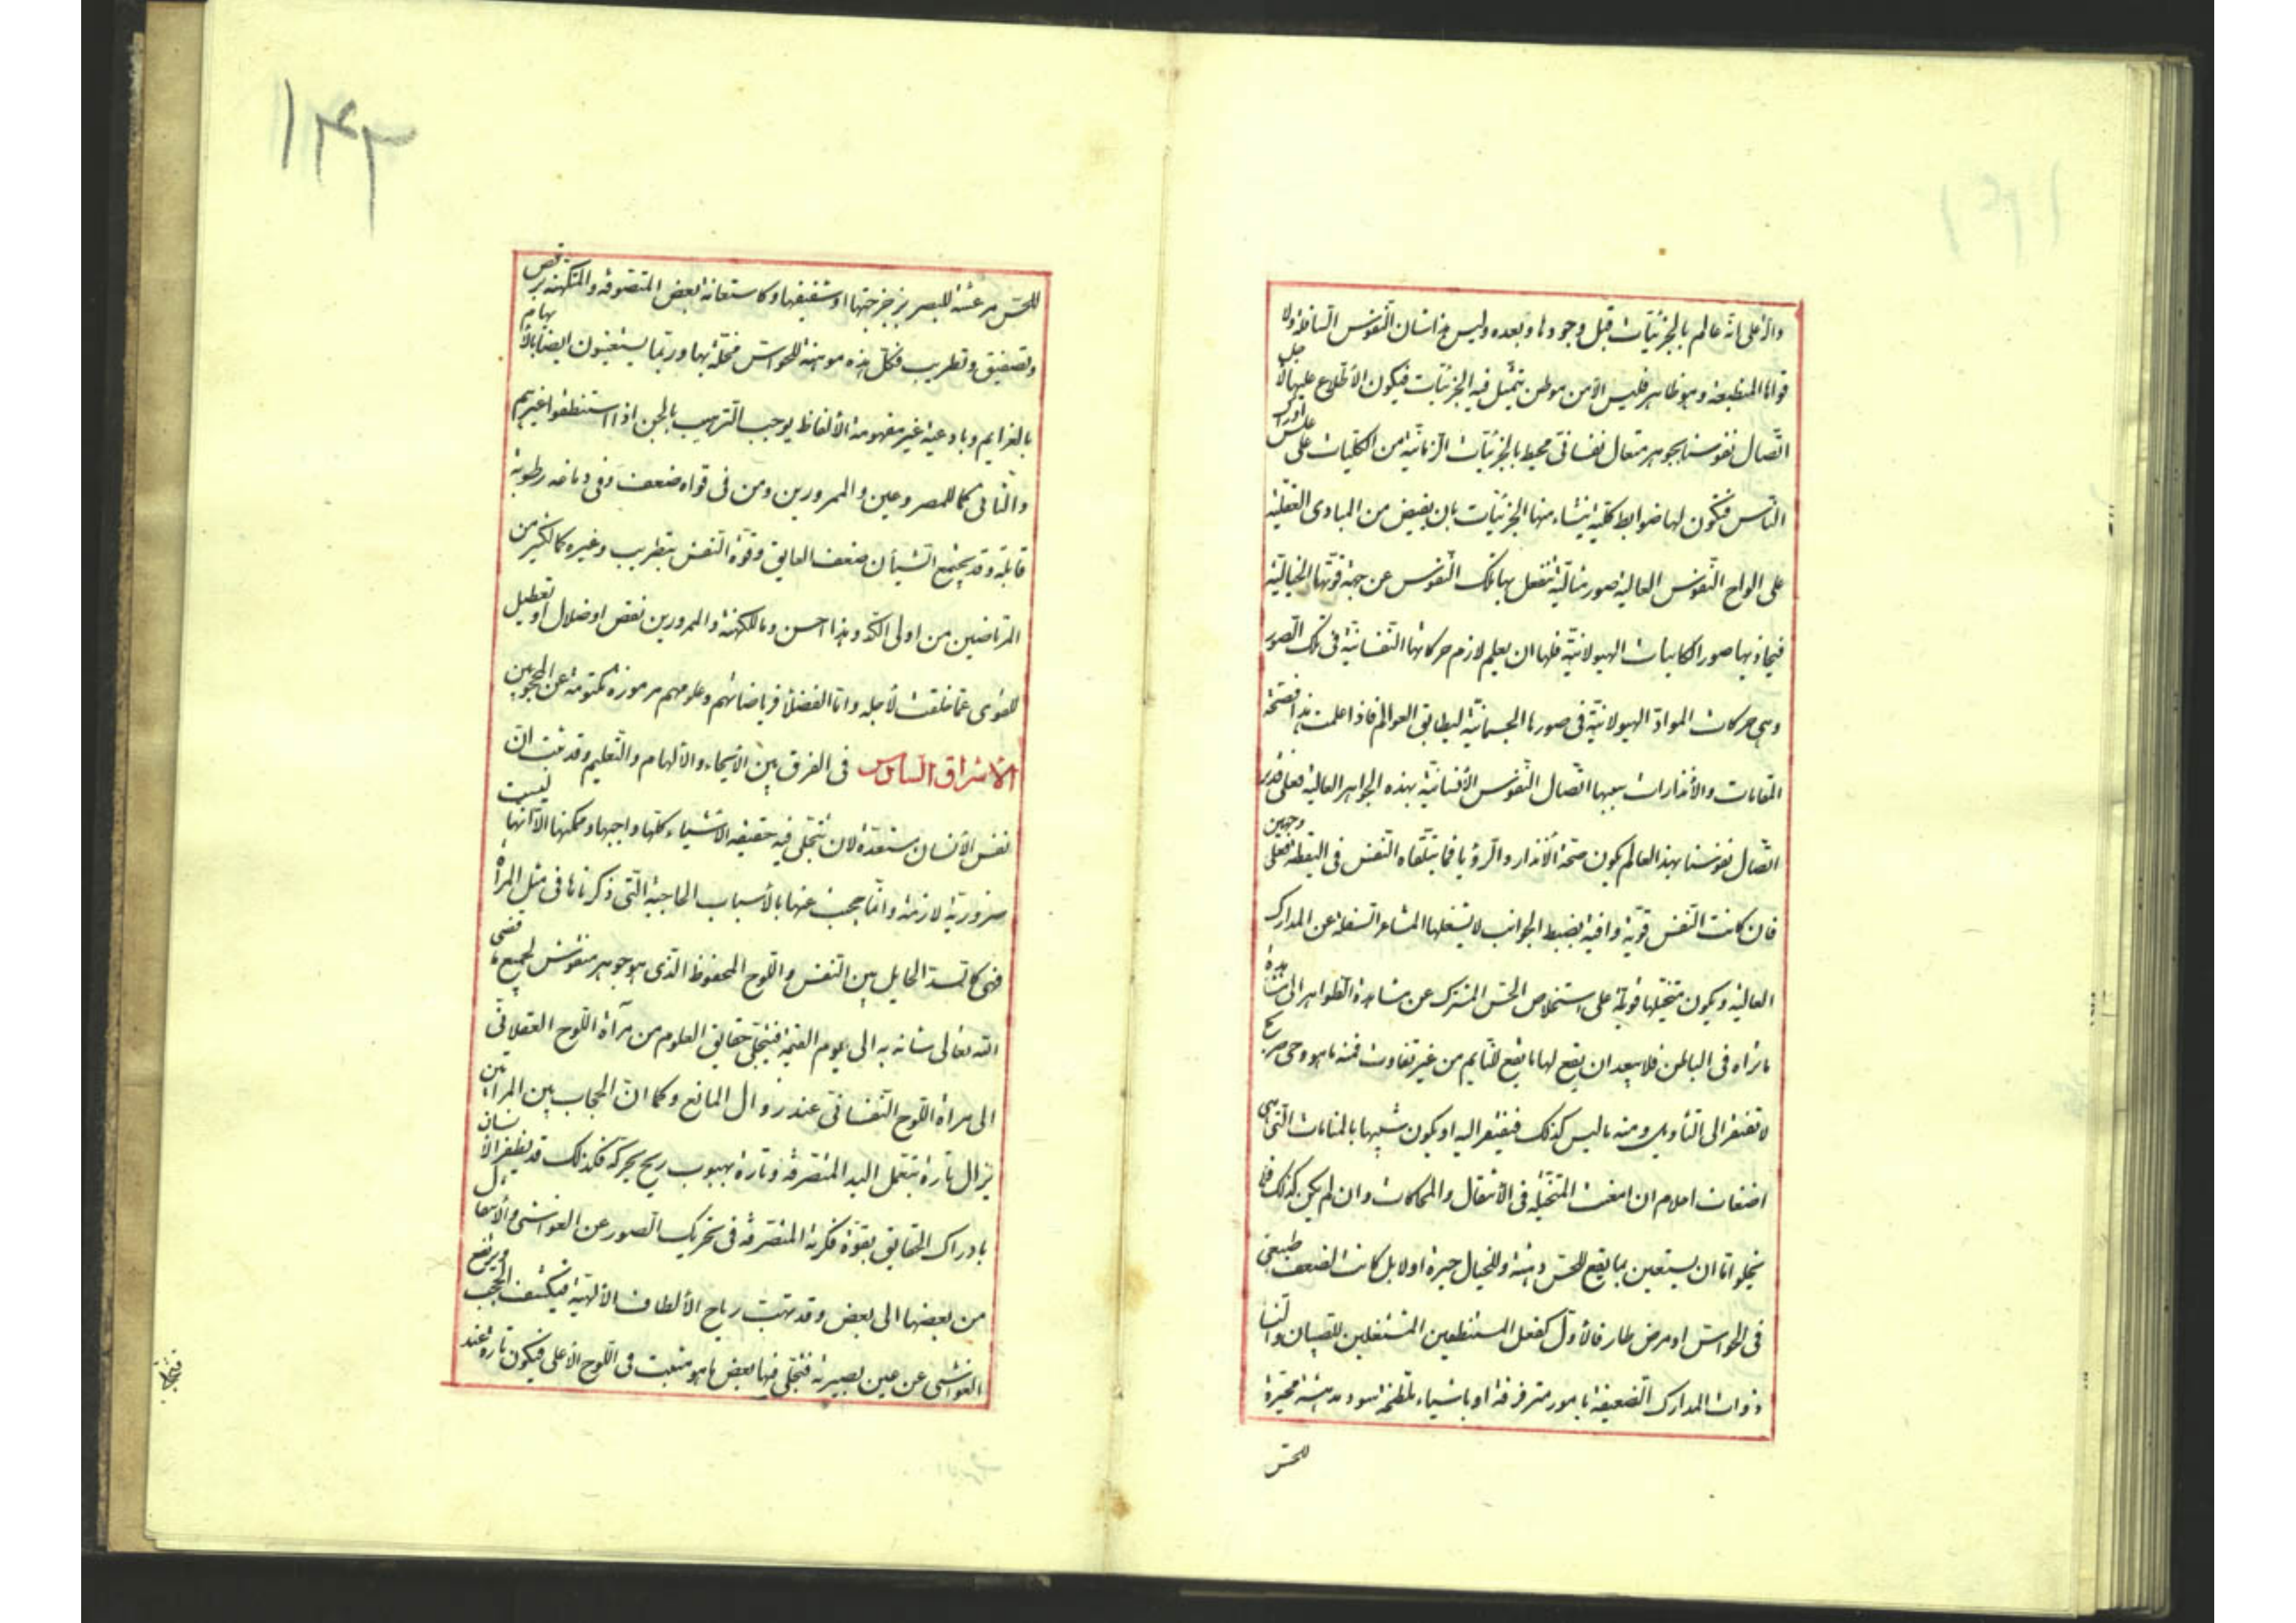 دالّ على انّه عالم بالجزئيّات قبل وجودها وبعده وليس هذا شان النّفوس السّافلة ولا
قوانا المنطبعة وهو ظاهر فليس الّا من موطن يتمثّل فيه الجزئيّات فيكون الاطّلاع عليها لاجل
اتّصال نفوسنا بجوهر متعال نفسانیّ محيط بالجزئيّات الزمانيّة من الكليّات على عكس ادراك
النّاس فتكون لها ضوابط كليّة ينشاء منها الجزئيّات بان يفيض من المبادى العقليّة
على الواح النّفوس العالية صور مثاليّة تنفعل بها تلك النّفوس عن جهة قوّتها الخياليّة
فيحاذ بها صور الكاينات الهيولانيّة فلها ان يعلم لازم حركاتها النّفسانيّة فى تلك الصّور
وهى حركات الموادّ الهيولانيّة فى صورها الجسمانيّة ليطابق العوالم فاذا علمت هذا فصحّة
المنامات والانذارات سببها اتّصال النّفوس الأنسانيّة بهذه الجواهر العالية فعلى قدر
اتّصال نفوسنا بهذا العالم يكون صحّة الأنذار والرّؤيا فما يتلقّاه النّفس فى اليقظة فعلى وجهين
فان كانت النّفس قويّة وافية بضبط الجوانب لا يشغلها المشاعر السّفلة عن المدارك
العالية ويكون متخيّلها قويّة على استخلاص الحسّ المشترك عن مشاهدة الظّواهر الى مشاهدة
ما تراه فى الباطن فلا يبعد ان يقع لها ما يقع للنّايم من غير تفاوت فمنه ما هو وحى صريح
لا تفتقر الى التأويل ومنه ما ليس كذلك فيفتقر اليه او يكون شبيها بالمنامات الّتى هى
اضغاث احلام ان امعنت المتخيّلة فى الانتقال والمحاكات وان لم يكن كذلك فلا
يخلو امّا ان يستعين بما يقع للحسّ دهشة وللخيال حيرة او لا بل كانت لضعف طبيعىّ
فى الحواسّ او مرض طار فالأوّل كفعل المستنطقين المشتغلين للصبيان والنّسا
ذوات المدارك الضّعيفة بامور مترقرقة او باشياء ملطّخة سود مدهشة محيّرة
للحسّ
١٤٣
للحسّ مرعشة للبصر بزجزجتها او شفيفها وكاستعانة بعض المتصوّفة والمتكهّنة برقص
وتصفيق وتطريب فكلّ هذه موهشة للحواسّ مخلّة بها وربّما يستعينون ايضا بالأبهام
بالعزايم وبادعية غير مفهومة الألفاظ يوجب التّرهيب بالجنّ اذا استنطقوا غيرهم
والثّانى كما للمصروعين والممرورين ومن فى قواه ضعف وفى دماغه رطوبة
قابلة وقد يجتمع الشّيأن ضعف العايق وقوّة النّفس بتطريب وغيره كما لكثير من
المرتاضين من اولى الكدّ وهذا حسن وما للكهنة والممرورين نقص او ضلال او تعطيل
للقوى عمّا خلقت لأجله وامّا الفضلاء فرياضاتهم وعلومهم مرموزة مكتومة عن المحجوبين
الاشراق السّادس فى الفرق بين الايحاء والألهام والتّعليم وقد ثبت انّ
نفس الأنسان مستعدّة لان تتجلّى فيه حقيقة الاشياء كلّها واجبها وممكنها الّا انّها ليست
ضروريّة لازمة وانّما حجب عنها بالأسباب الحاجبة الّتى ذكرناها فى مثل المرأة
فهى كالسدّ الحايل بين النّفس واللّوح المحفوظ الّذى هو جوهر منقوش لجميع ما قضى
اللّه تعالى شانه به الى يوم القيمة فتتجلّى حقايق العلوم من مرآة اللّوح العقلانىّ
الى مرأة اللّوح النّفسانىّ عند زوال المانع وكما انّ الحجاب بين المرأتين
يزال تارة بتعمّل اليد المتصرّفة وتارة بهبوب ريح يحرّكه فكذلك قد يظفر الأنسان
بادراك الحقايق بقوّة فكرته المتصرّفة فى تحريك الصّور عن الغواشى والأنتقال
من بعضها الى بعض وقد تهبّ رياح الألطاف الألهيّة فيكشف الحجب ويرتفع
الغواشى عن عين بصيرته فتتجلّى فيها بعض ما هو مثبت فى اللّوح الأعلى فيكون تارة عند